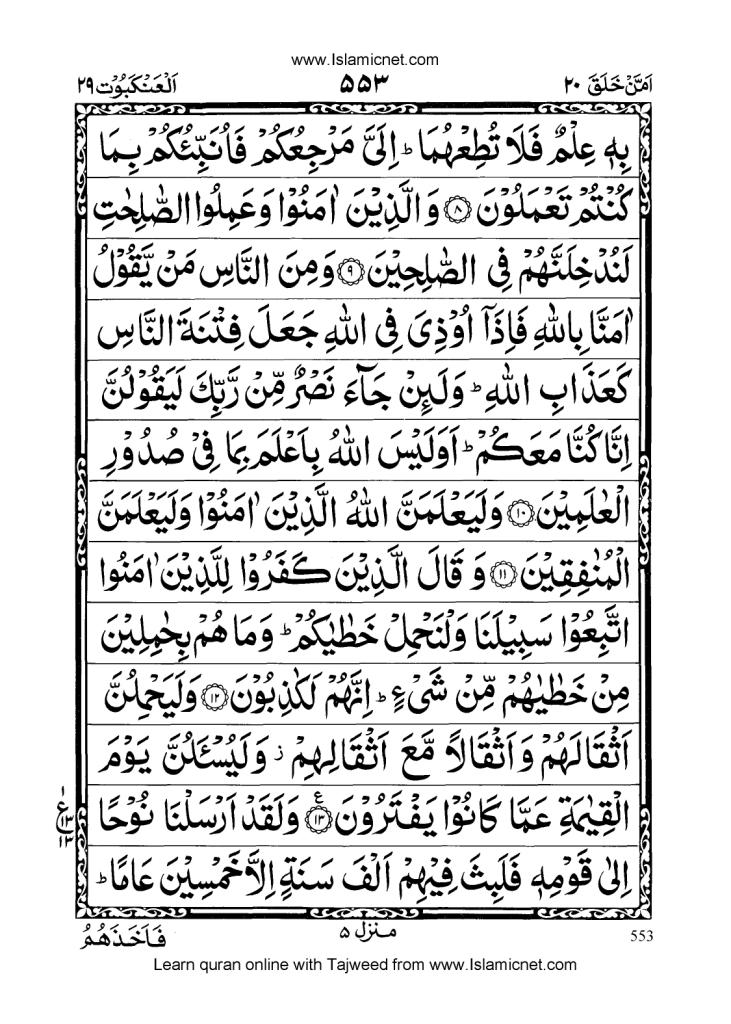 www.Islamicnet.com
اَمَّنْ خَلَقَ ۲۰
۵۵۳
اَلْعَنْكَبُوْت ۲۹
بِهٖ عِلْمٌ فَلَا تُطِعْهُمَا ؕ اِلَیَّ مَرْجِعُكُمْ فَاُنَبِّئُكُمْ بِمَا
كُنْتُمْ تَعْمَلُوْنَ ﴿۸﴾ وَالَّذِیْنَ اٰمَنُوْا وَعَمِلُوا الصّٰلِحٰتِ
لَنُدْخِلَنَّهُمْ فِی الصّٰلِحِیْنَ ﴿۹﴾ وَمِنَ النَّاسِ مَنْ یَّقُوْلُ
اٰمَنَّا بِاللّٰهِ فَاِذَاۤ اُوْذِیَ فِی اللّٰهِ جَعَلَ فِتْنَةَ النَّاسِ
كَعَذَابِ اللّٰهِ ؕ وَلَئِنْ جَآءَ نَصْرٌ مِّنْ رَّبِّكَ لَیَقُوْلُنَّ
اِنَّا كُنَّا مَعَكُمْ ؕ اَوَلَیْسَ اللّٰهُ بِاَعْلَمَ بِمَا فِیْ صُدُوْرِ
الْعٰلَمِیْنَ ﴿۱۰﴾ وَلَیَعْلَمَنَّ اللّٰهُ الَّذِیْنَ اٰمَنُوْا وَلَیَعْلَمَنَّ
الْمُنٰفِقِیْنَ ﴿۱۱﴾ وَقَالَ الَّذِیْنَ كَفَرُوْا لِلَّذِیْنَ اٰمَنُوا
اتَّبِعُوْا سَبِیْلَنَا وَلْنَحْمِلْ خَطٰیٰكُمْ ؕ وَمَا هُمْ بِحٰمِلِیْنَ
مِنْ خَطٰیٰهُمْ مِّنْ شَیْءٍ ؕ اِنَّهُمْ لَكٰذِبُوْنَ ﴿۱۲﴾ وَلَیَحْمِلُنَّ
اَثْقَالَهُمْ وَاَثْقَالًا مَّعَ اَثْقَالِهِمْ ؗ وَلَیُسْـَٔلُنَّ یَوْمَ
الْقِیٰمَةِ عَمَّا كَانُوْا یَفْتَرُوْنَ ﴿۱۳﴾ ع وَلَقَدْ اَرْسَلْنَا نُوْحًا
۱ ع ۱۳ ۱۳
اِلٰی قَوْمِهٖ فَلَبِثَ فِیْهِمْ اَلْفَ سَنَةٍ اِلَّا خَمْسِیْنَ عَامًا ؕ
553
منزل ۵
فَاَخَذَهُمُ
Learn quran online with Tajweed from www.Islamicnet.com